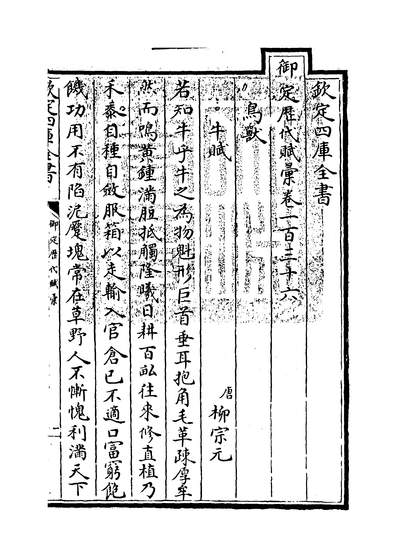 欽定四庫全書
御定歴代賦彙卷一百三十六
鳥獸
牛賦　唐　柳宗元
若知牛乎牛之為物魁形巨首垂耳抱角毛革疎厚牟
然而鳴黄鍾滿脰抵觸隆曦日耕百畝往來修直植乃
禾黍自種自斂服箱以走輸入官倉已不適口富窮飽
饑功用不有陷泥蹷塊常在草野人不慚愧利滿天下
欽定四庫全書
御定歴代賦彙